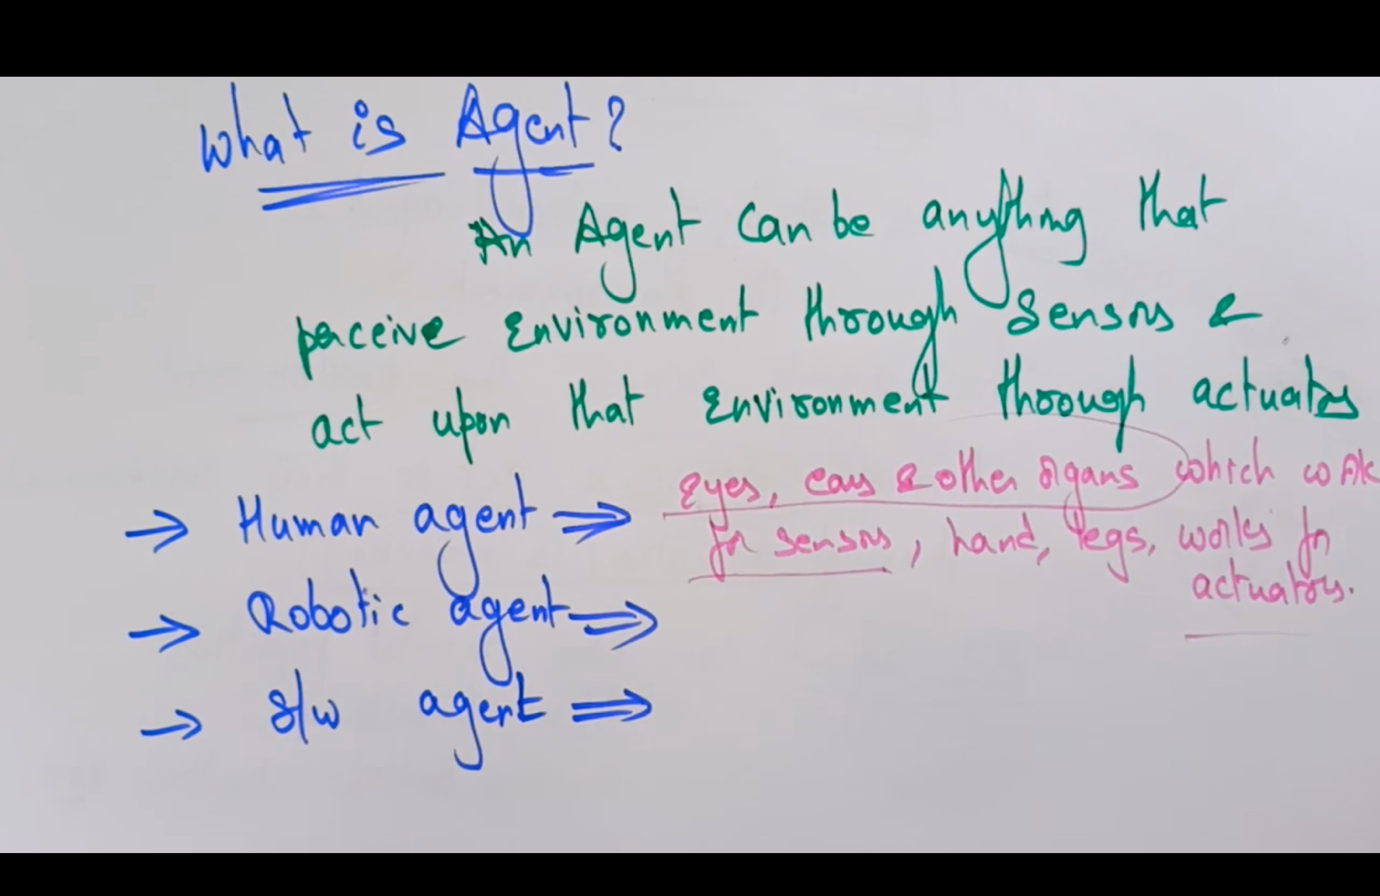 What is Agent?
An Agent can be anything that
perceive Environment through Sensors &
act upon that Environment through actuators
→ Human agent ⇒ Eyes, ears & other organs which work
for sensors, hand, legs, works for
actuators.
→ Robotic agent ⇒
→ S/w agent ⇒